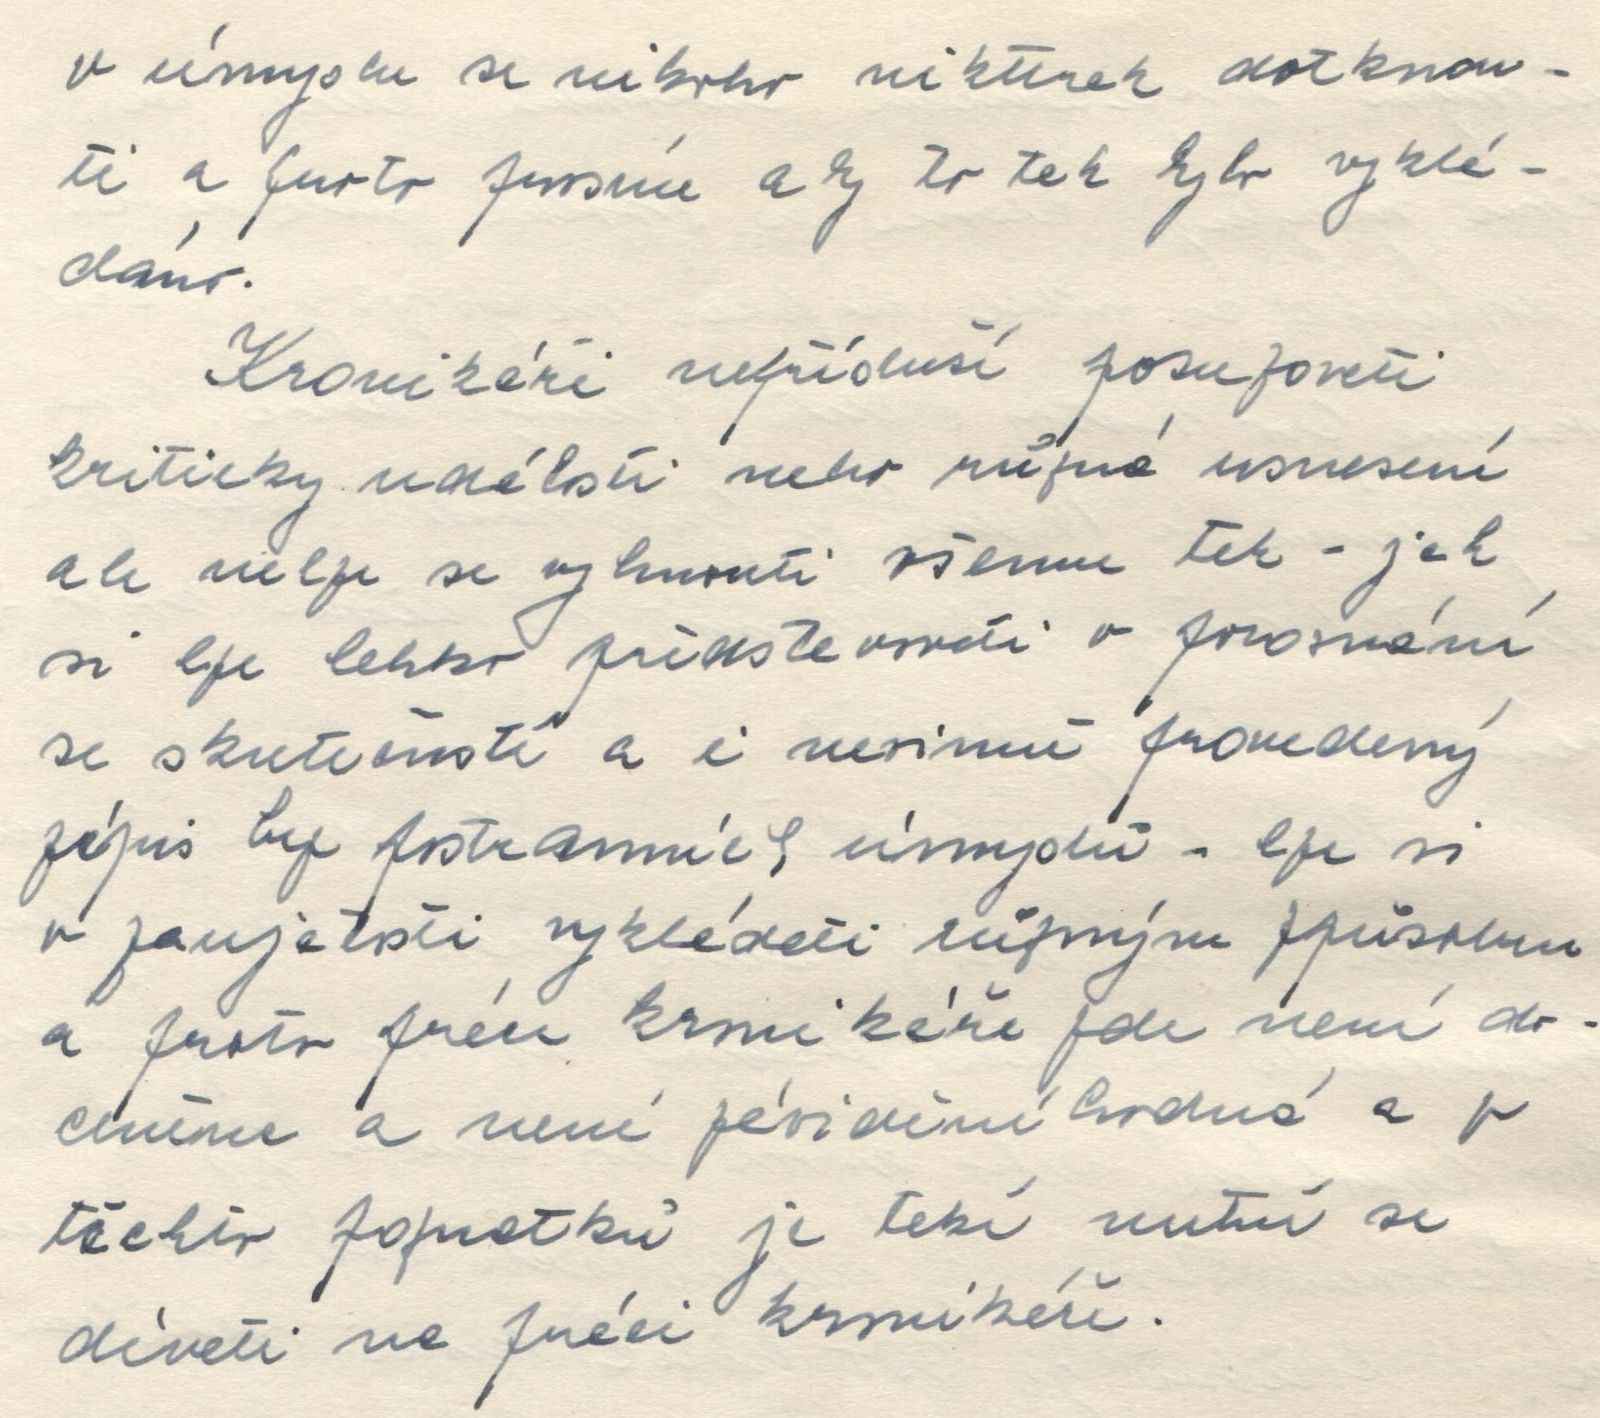 v úmyslu se nikoho nikterak dotknou-
ti a proto prosím aby to tak bylo vyklá-
dáno.
Kronikáři nepřísluší posuzovati
kriticky události nebo různá usnesení
ale nelze se vyhnouti všemu tak - jak
si lze lehko představovati v porovnání
se skutečností a i nevinně provedený
zápis bez postranních úmyslů - lze si
v zaujatosti vykládati různým způsobem
a proto práce kronikáře zde není do-
ceněna a není záviděníhodná a z
těchto poznatků je také nutné se
dívati na práci kronikáře.